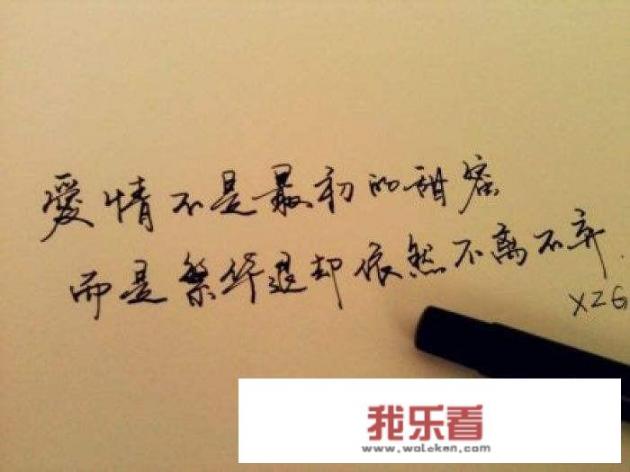 愛情不是最初的甜蜜
而是繁华退却依然不离不弃.
XZG
我乐看
www.waleken.com